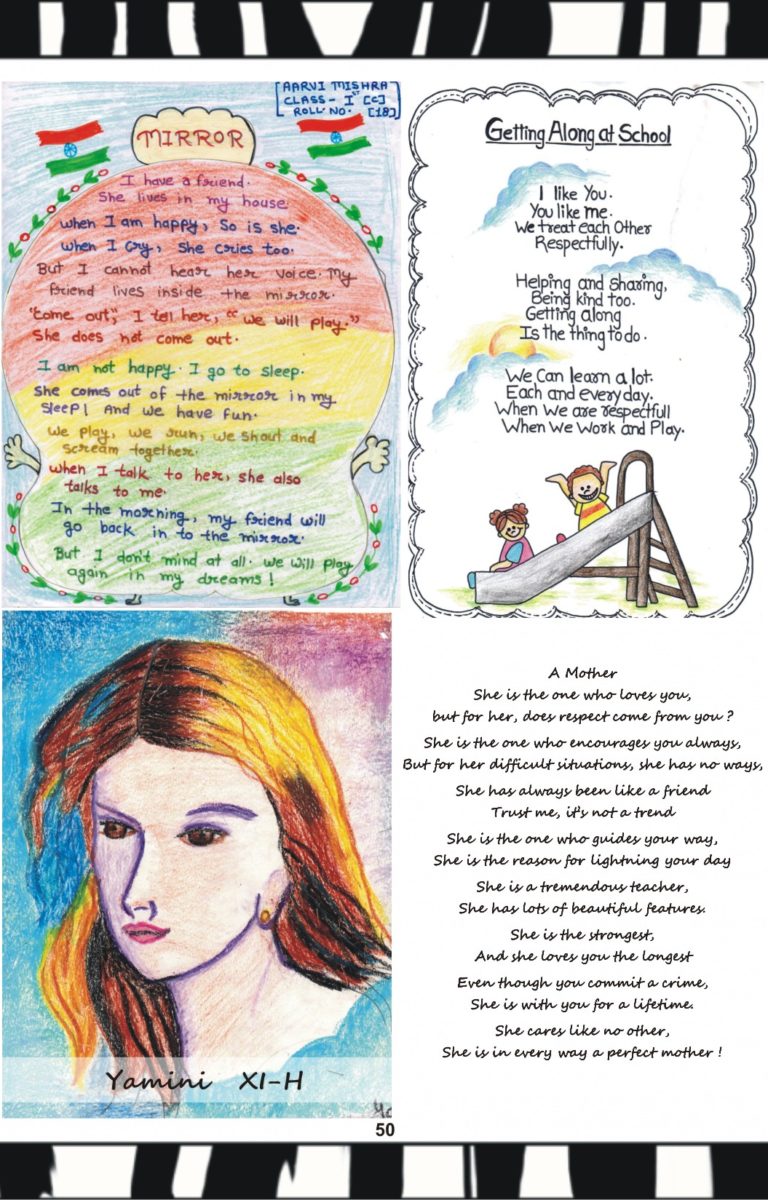 [AARVI MISHRA
CLASS- Iˢᵗ [C]
ROLL NO. [18]]
MIRROR
I have a friend.
She lives in my house
when I am happy, So is she.
when I cry, She cries too.
But I cannot hear her voice. My
friend lives inside the mirror.
"Come out", I tell her, "we will play."
She does not come out.
I am not happy. I go to sleep.
She comes out of the mirror in my
sleep! And we have fun.
we play, we run, we shout and
scream together.
when I talk to her, she also
talks to me.
In the morning, my friend will
go back in to the mirror.
But I don't mind at all. we will play
again in my dreams!
Getting Along at School
I like You.
You like me.
We treat each Other
Respectfully.
Helping and sharing,
Being kind too.
Getting along
Is the thing to do.
We Can learn a lot.
Each and every day.
When We are respectfull
When We Work and Play.
Yamini XI-H
A Mother
She is the one who loves you,
but for her, does respect come from you ?
She is the one who encourages you always,
But for her difficult situations, she has no ways,
She has always been like a friend
Trust me, it's not a trend
She is the one who guides your way,
She is the reason for lightning your day
She is a tremendous teacher,
She has lots of beautiful features.
She is the strongest,
And she loves you the longest
Even though you commit a crime,
She is with you for a lifetime.
She cares like no other,
She is in every way a perfect mother !
50